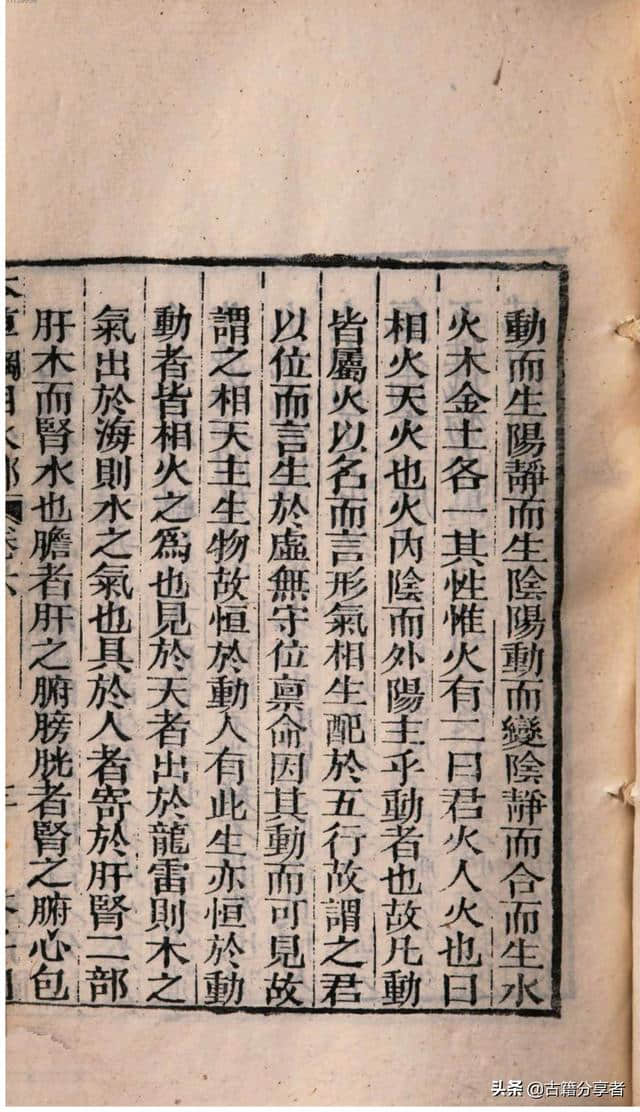 動而生陽靜而生陰陽動而變陰靜而合而生水
火木金土各一其性惟火有二曰君火人火也曰
相火天火也火内陰而外陽主乎動者也故凡動
皆屬火以名而言形氣相生配於五行故謂之君
以位而言生於虛無守位稟命因其動而可見故
謂之相天主生物故恒於動人有此生亦恒於動
動者皆相火之爲也見於天者出於龍雷則木之
氣出於海則水之氣也具於人者寄於肝腎二部
肝木而腎水也膽者肝之腑膀胱者腎之腑心包
頭条 @古籍分享者